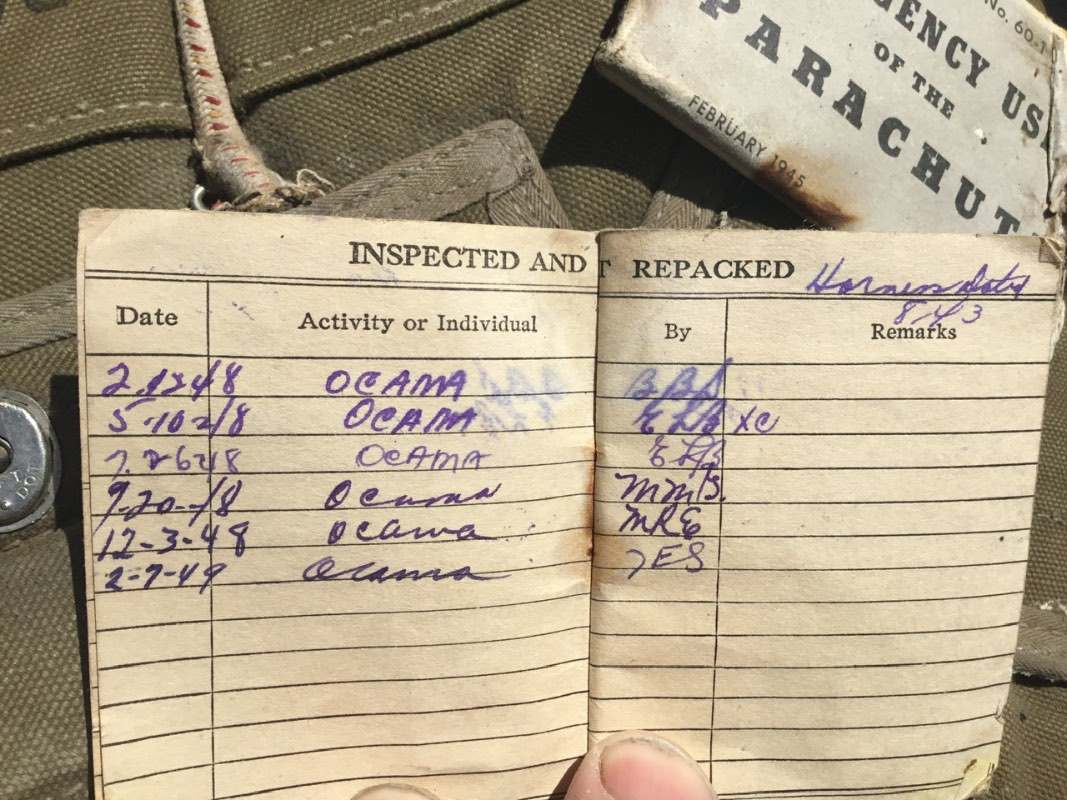 No. 60-1
GENCY US
OF THE
PARACHUT
FEBRUARY 1945
INSPECTED AND REPACKED
8-43
Date Activity or Individual By Remarks
OCAMA BBS
5-10 OCAMA ELB XC
OCAMA ELB
9-20 Ocama MMB.
12-3-48 Ocama MRE
2-7-49 Ocama JES
DOT